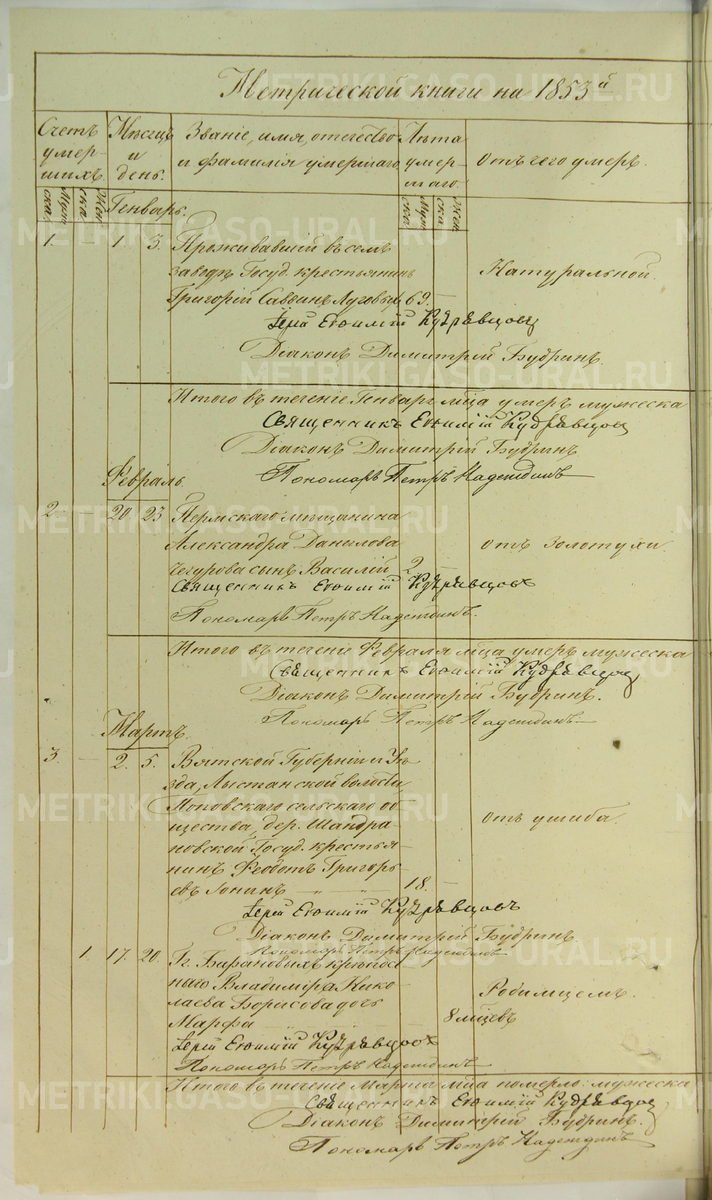 Метрической книги на 1853й
Счетъ умер- шихъ. Мѣсяцъ и день. Званіе, имя, отчество и фамилія умершаго. Лѣта умер- шаго. Отъ чего умеръ.
Муж ска. Жен ска. Муж ска. Жен ска.
Генварь.
1. 1. 3. Проживавшій въ семъ
заводѣ Госуд. крестьянинъ Натуральной.
Григорій Саввинъ 69.
Іерей Евѳимій Кудрявцовъ
Діаконъ Димитрій Будринъ.
Итого въ теченіе Генваря мѣсяца умеръ мужеска
Священникъ Евѳимій Кудрявцовъ
Діаконъ Димитрій Будринъ
Пономарь Петръ Надеждинъ
Февраль
2 20 23 Пермскаго мѣщанина
Александра Данилова отъ золотухи.
сынъ Василій 2
Священникъ Евѳимій Кудрявцовъ
Пономарь Петръ Надеждинъ.
Итого въ теченіе Февраля мѣсяца умеръ мужеска
Священникъ Евѳимій Кудрявцовъ
Діаконъ Димитрій Будринъ.
Пономарь Петръ Надеждинъ
Мартъ.
3. 2. 5. Вятской Губерніи и Уѣ-
зда, волости
Поповскаго сельскаго об-
щества, дер. Шандра- отъ ушиба.
новской Госуд. крестья-
нинъ Ѳеодотъ Григорь-
евъ 18.
Іерей Евѳимій Кудрявцовъ
Діаконъ Димитрій Будринъ
Пономарь Петръ Надеждинъ
1. 17. 20. Гг. Барановыхъ крѣпос-
наго Владиміра Нико- Родимцемъ.
лаева Борисова дочь
Марфа 8 мѣсяцевъ
Іерей Евѳимій Кудрявцовъ
Пономарь Петръ Надеждинъ
Итого въ теченіе Марта мѣсяца померло: мужеска
Священникъ Евѳимій Кудрявцовъ
Діаконъ Димитрій Будринъ.
Пономарь Петръ Надеждинъ
METRIKI.GASO-URAL.RU